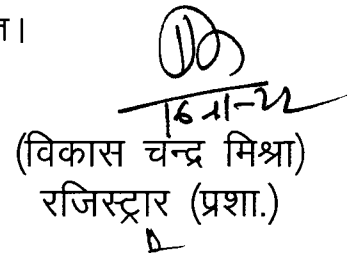 16-11-22
(विकास चन्द्र मिश्रा)
रजिस्ट्रार (प्रशा.)